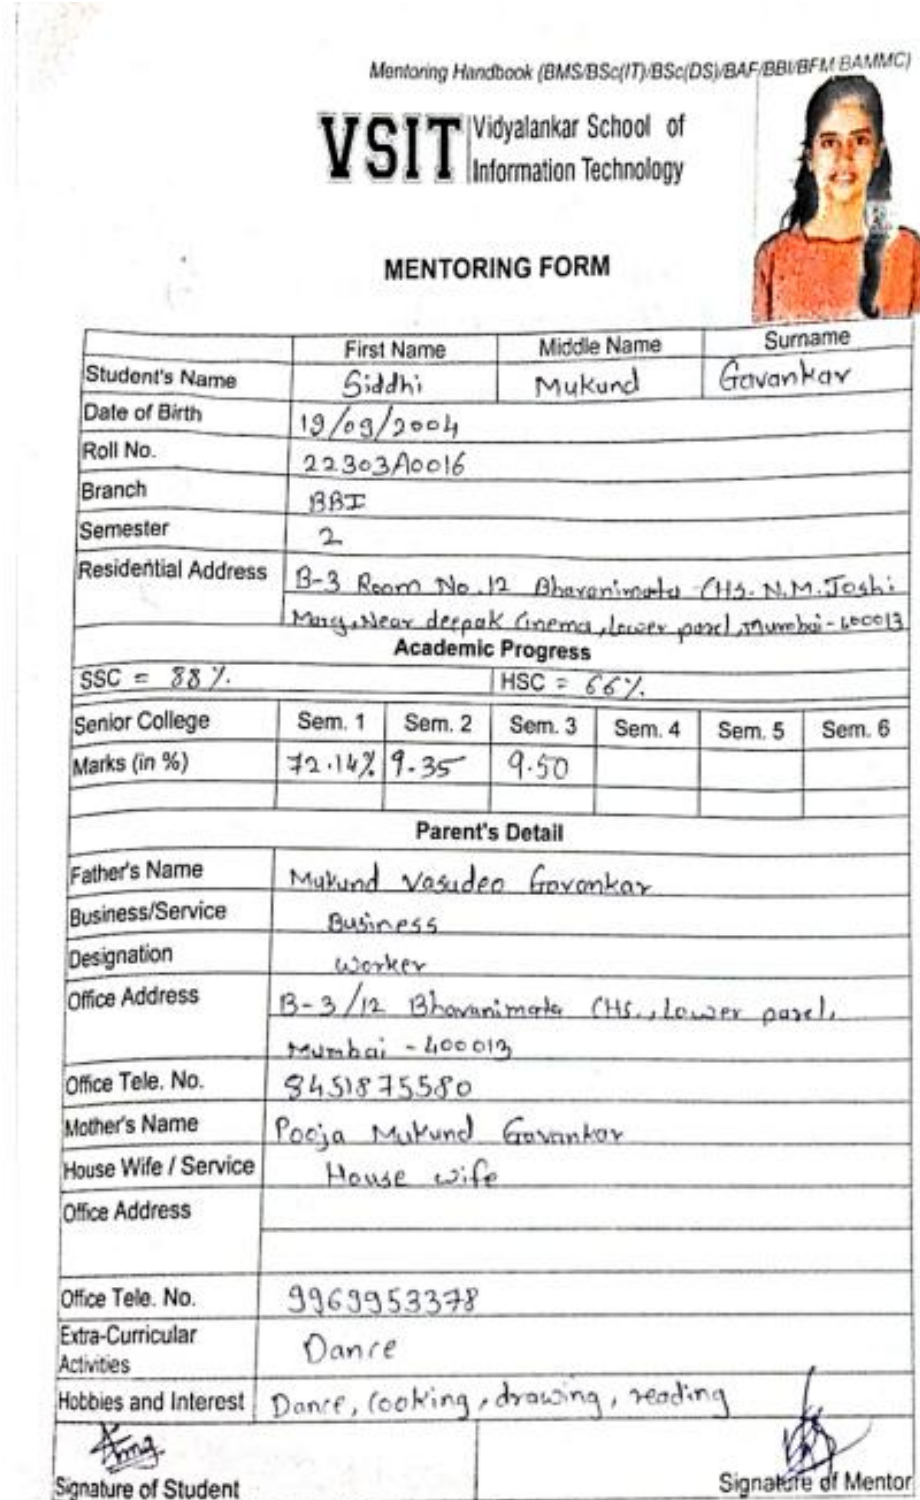 Mentoring Handbook (BMS/BSc(IT)/BSc(DS)/BAF/BBI/BFM/BAMMC)
VSIT Vidyalankar School of
Information Technology
MENTORING FORM
First Name Middle Name Surname
Student's Name Siddhi Mukund Gavankar
Date of Birth 19/09/2004
Roll No. 22303A0016
Branch BBI
Semester 2
Residential Address B-3 Room No.12 Bhavanimata CHS. N.M.Joshi
Marg, Near deepak Cinema, Lower parel, Mumbai-400013
Academic Progress
SSC = 88%. HSC = 66%.
Senior College Sem. 1 Sem. 2 Sem. 3 Sem. 4 Sem. 5 Sem. 6
Marks (in %) 72.14% 9.35 9.50
Parent's Detail
Father's Name Mukund Vasudeo Gavankar
Business/Service Business
Designation Worker
Office Address B-3/12 Bhavanimata CHS., Lower parel,
Mumbai - 400013
Office Tele. No. 8451875580
Mother's Name Pooja Mukund Gavankar
House Wife / Service House wife
Office Address
Office Tele. No. 9969953378
Extra-Curricular
Activities Dance
Hobbies and Interest Dance, Cooking, drawing, reading
Signature of Student Signature of Mentor